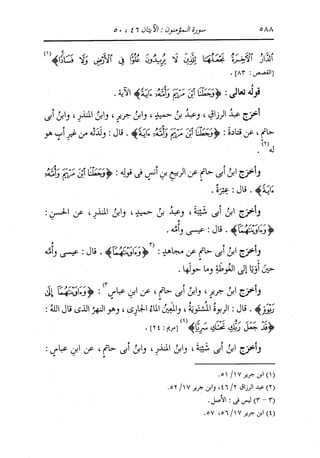 ٥٨٨ سورة المؤمنون : الآيتان ٤٦ ، ٥٠
الدَّارُ الْآخِرَةُ نَجْعَلُهَا لِلَّذِينَ لَا يُرِيدُونَ عُلُوًّا فِي الْأَرْضِ وَلَا فَسَادًا﴾(١)
[القصص : ٨٣] .
قولُه تعالى : ﴿وَجَعَلْنَا ابْنَ مَرْيَمَ وَأُمَّهُ ءَايَةً﴾ الآية .
أخرَج عبدُ الرزاقِ ، وعبدُ بنُ حميدٍ ، وابنُ جريرٍ ، وابنُ المنذرِ ، وابنُ أبى
حاتمٍ ، عن قتادةَ : ﴿وَجَعَلْنَا ابْنَ مَرْيَمَ وَأُمَّهُ ءَايَةً﴾ . قال : ولَدَتْه من غيرِ أبٍ هو
له(٢) .
وأخرَج ابنُ أبى حاتمٍ عن الربيعِ بنِ أنسٍ فى قولِه : ﴿وَجَعَلْنَا ابْنَ مَرْيَمَ وَأُمَّهُ
ءَايَةً﴾ . قال : عِبْرَةً .
وأخرَج ابنُ أبى شيبةَ ، وعبدُ بنُ حميدٍ ، وابنُ المنذرِ ، عن الحسنِ :
﴿وَءَاوَيْنَاهُمَا﴾ . قال : عيسى وأُمُّه .
وأخرَج ابنُ أبى حاتمٍ عن مجاهدٍ : (٣﴿وَءَاوَيْنَاهُمَا﴾ . قال : عيسى وأُمُّه
حينَ أَوَيا إلى الغُوطةِ وما حولَها .
وأخرَج ابنُ جريرٍ ، وابنُ أبى حاتمٍ ، عن ابنِ عباسٍ٣) : ﴿وَءَاوَيْنَاهُمَا إِلَىٰ
رَبْوَةٍ﴾ . قال : الربوةُ المستويةُ ، والمَعِينُ الماءُ الجارى ، وهو النهرُ الذى قال اللهُ :
﴿قَدْ جَعَلَ رَبُّكِ تَحْتَكِ سَرِيًّا﴾(٤) [مريم : ٢٤] .
وأخرَج ابنُ أبى شيبةَ ، وابنُ المنذرِ ، وابنُ أبى حاتمٍ ، عن ابنِ عباسٍ :
(١) ابن جرير ١٧/ ٥١.
(٢) عبد الرزاق ٢/ ٤٦، وابن جرير ١٧/ ٥٢.
(٣ - ٣) ليس فى : الأصل .
(٤) ابن جرير ١٧/ ٥٦، ٥٧.